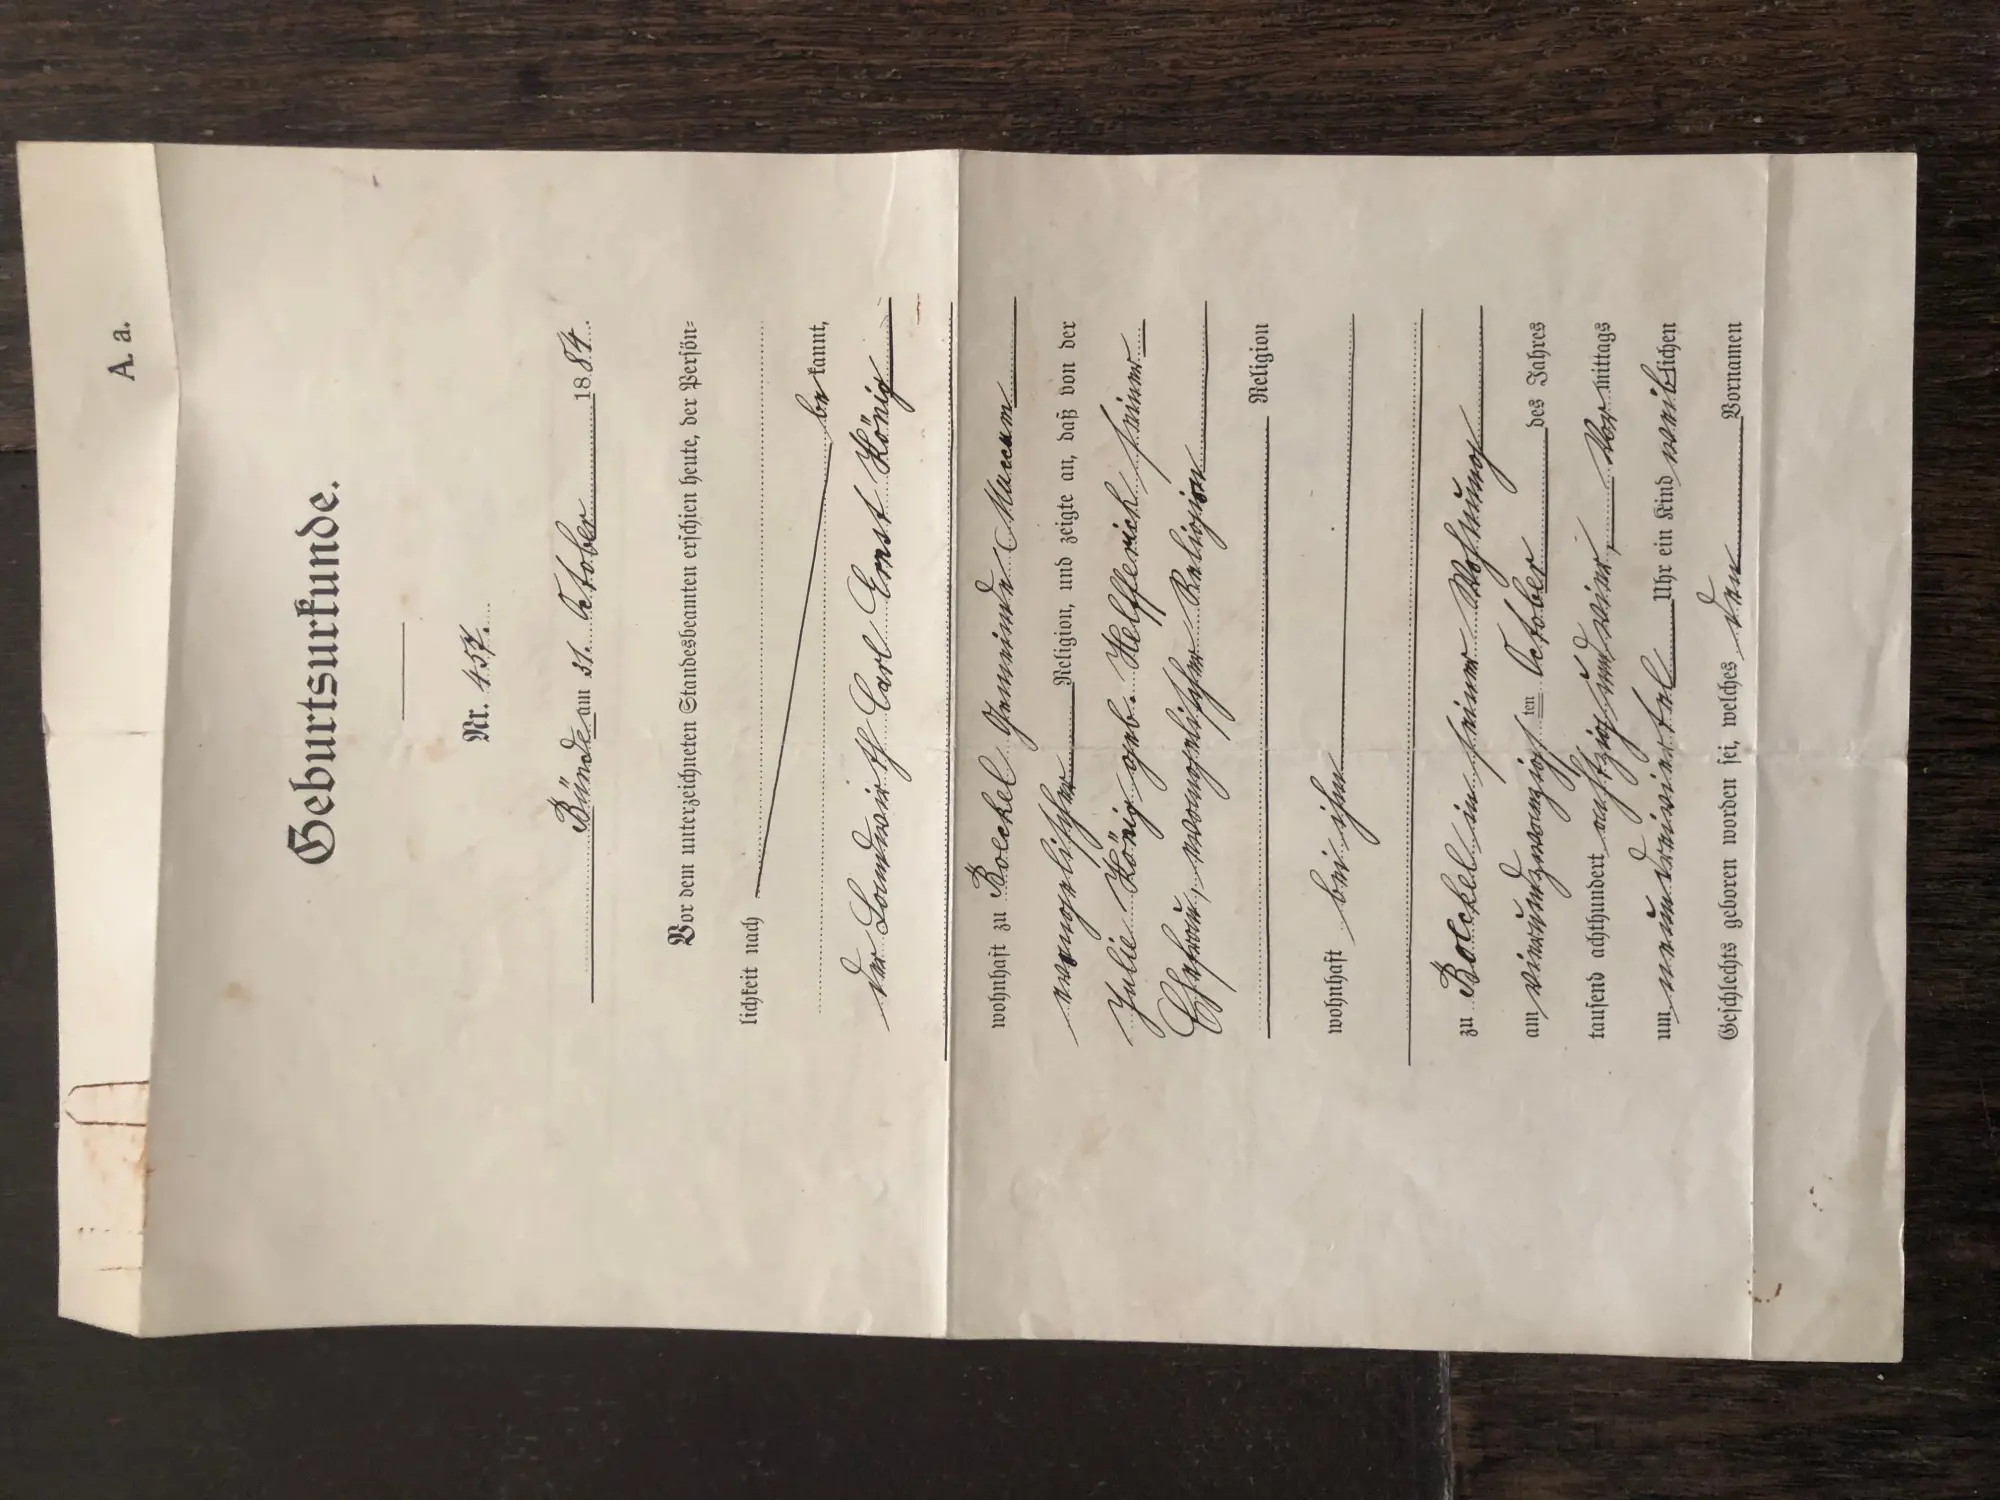 A. a.
Geburtsurkunde.
Nr. 457.
Bünde am 31. October 1884.
Vor dem unterzeichneten Standesbeamten erschien heute, der Persön-
lichkeit nach
be kannt,
der Landwirth Carl Ernst König
wohnhaft zu Bolckel Gemeinde
evangelischer Religion, und zeigte an, daß von der
Julie König geb. Helfferich seiner
Ehefrau, evangelischer Religion
Religion
wohnhaft bei ihm
zu Bolckel in seiner Wohnung
am vierundzwanzigsten October des Jahres
tausend achthundert achtzig und vier, Vor mittags
um neun dreiviertel Uhr ein Kind weiblichen
Geschlechts geboren worden sei, welches den Vornamen